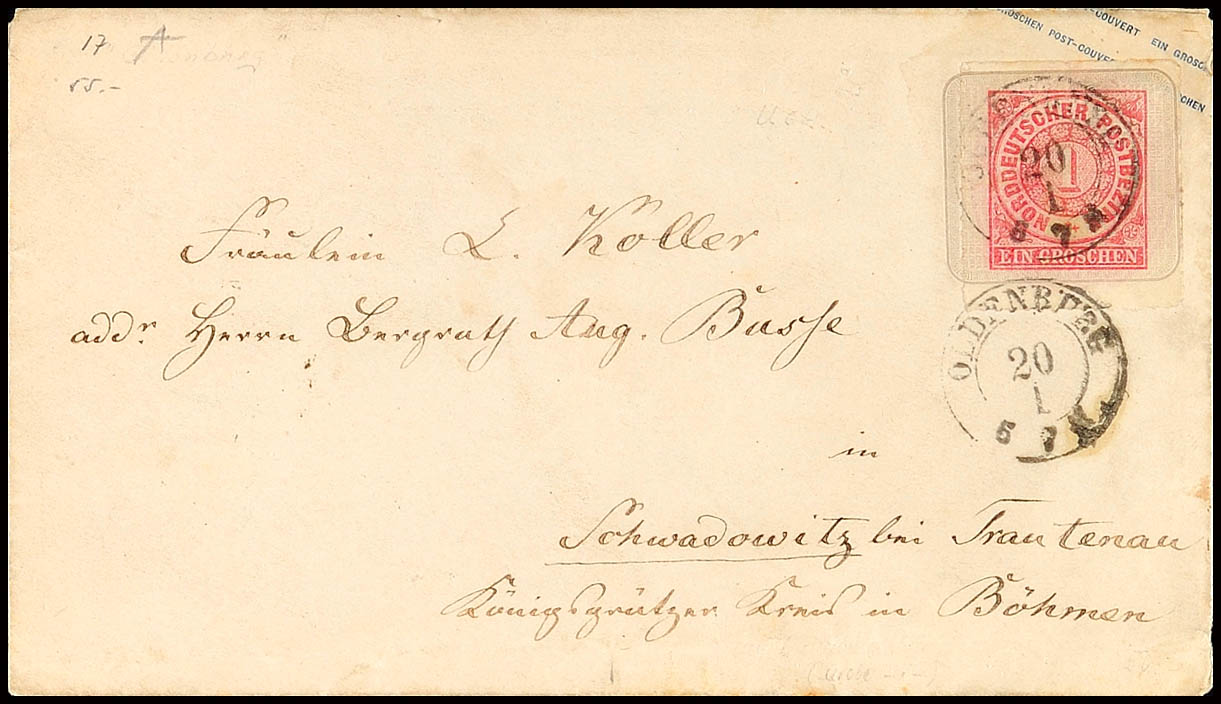 17 A
55.-
GROSCHEN POST-COUVERT
COUVERT EIN GROSCHEN
NORDDEUTSCHER POSTBEZIRK
1
EIN GROSCHEN
20
1
5 7
Fräulein L. Koller
addr. Herrn Bergrath Aug. Busse
OLDENBURG
20
1
5 7
in
Schwadowitz bei Trautenau
Königsgrätzer Kreis in Böhmen